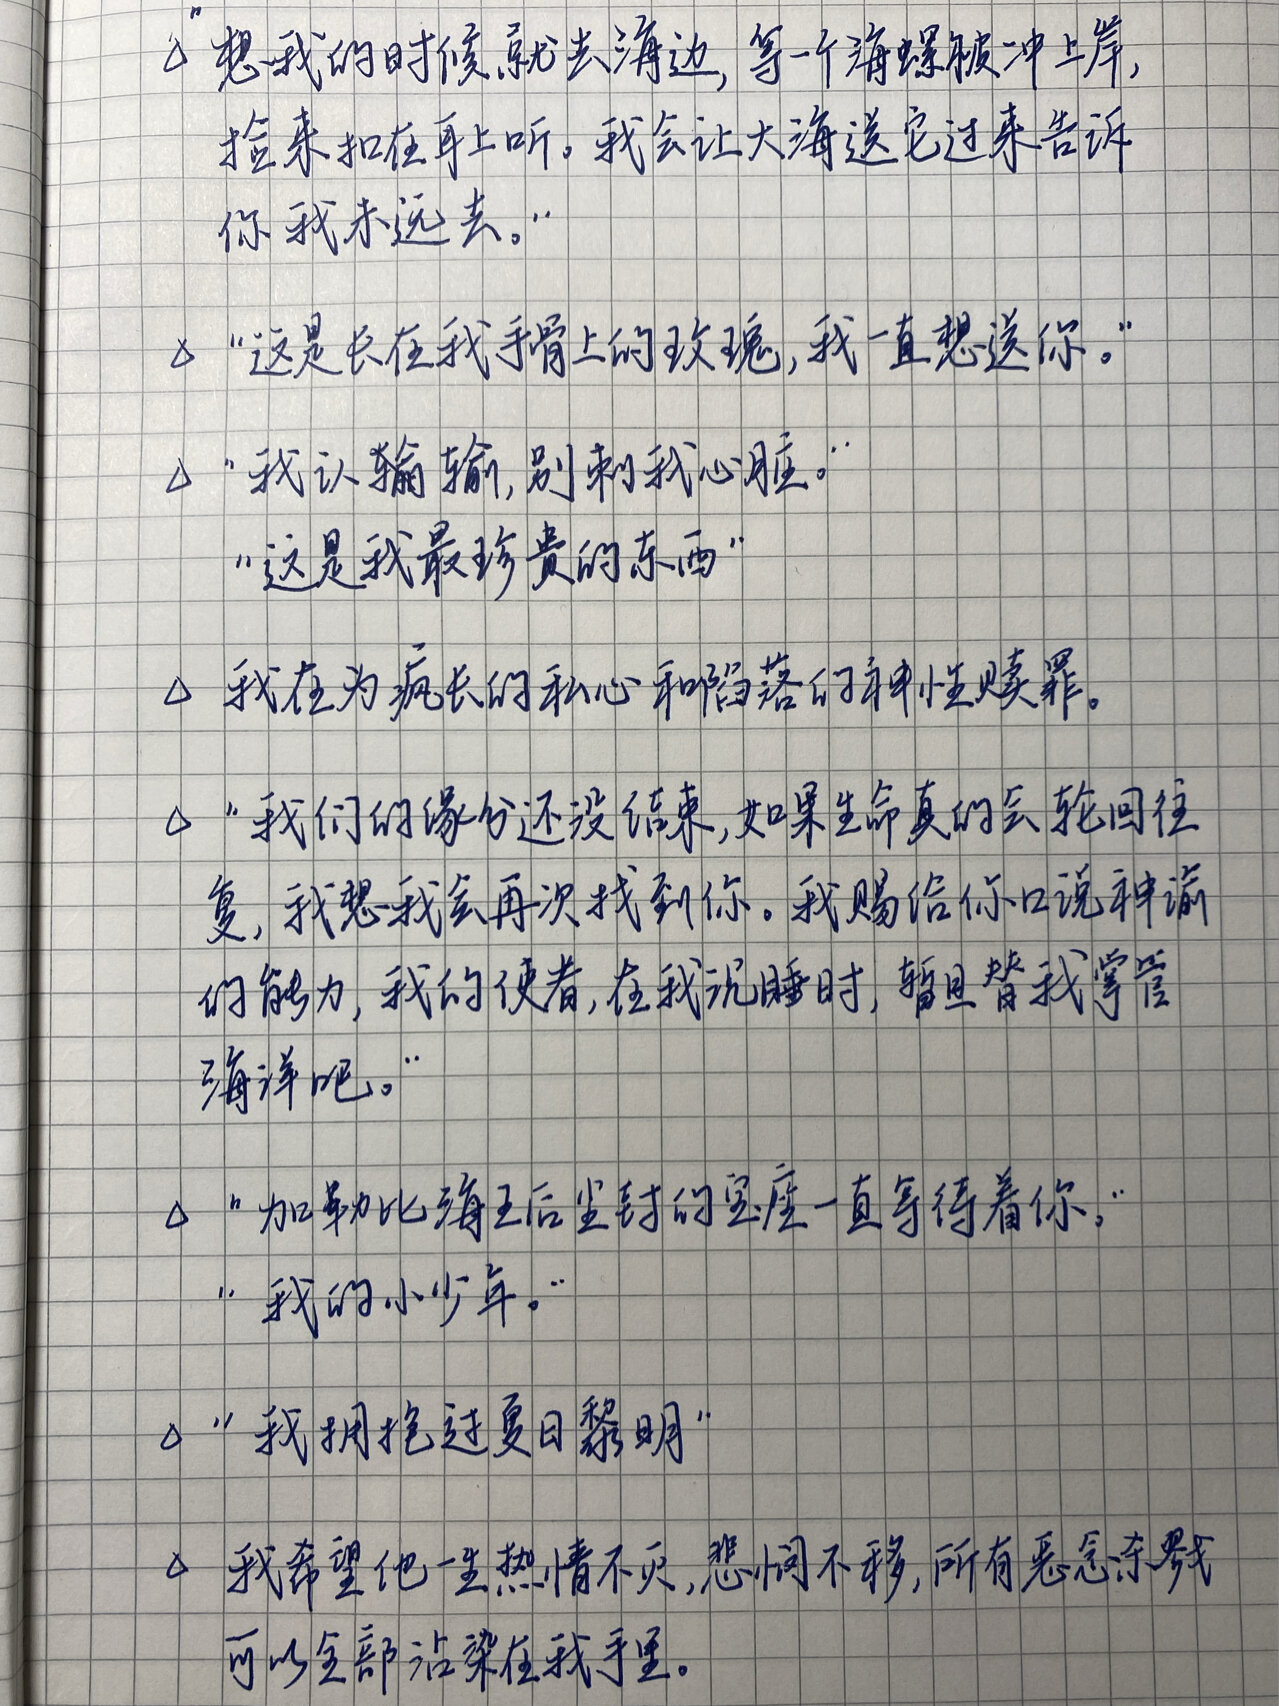 △ "想我的时候就去海边,等一个海螺被冲上岸,
捡来扣在耳上听。我会让大海送它过来告诉
你我未远去。"
△ "这是长在我手骨上的玫瑰,我一直想送你。"
△ "我认输输,别刺我心脏。"
"这是我最珍贵的东西"
△ 我在为疯长的私心和陷落的神性赎罪。
△ "我们的缘分还没结束,如果生命真的会轮回往
复,我想我会再次找到你。我赐给你口说神谕
的能力,我的使者,在我沉睡时,暂且替我掌管
海洋吧。"
△ "加勒比海王后尘封的宝座一直等待着你。"
"我的小少年。"
△ "我拥抱过夏日黎明"
△ 我希望他一生热情不灭,悲悯不移,所有恶念杀戮
可以全部沾染在我手里。